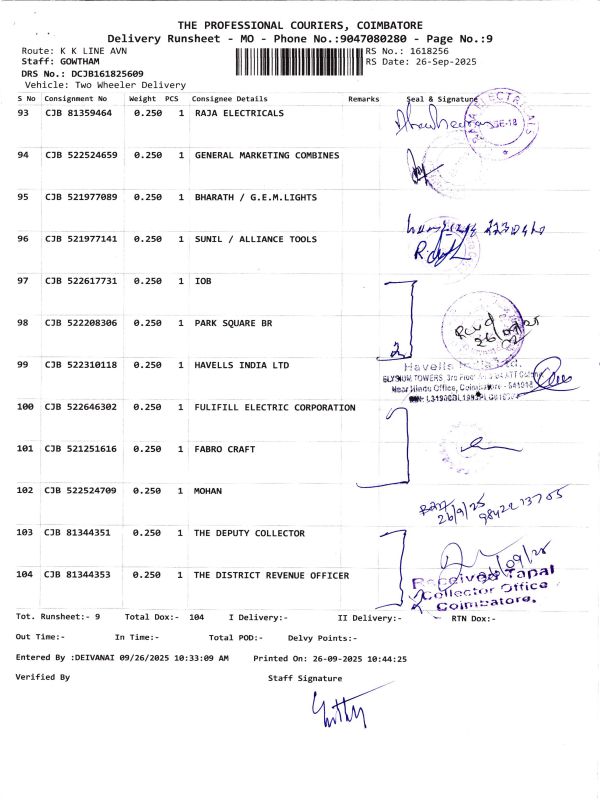 THE PROFESSIONAL COURIERS, COIMBATORE
Delivery Runsheet - MO - Phone No.:9047080280 - Page No.:9
Route: K K LINE AVN RS No.: 1618256
Staff: GOWTHAM RS Date: 26-Sep-2025
DRS No.: DCJB161825609
Vehicle: Two Wheeler Delivery
S No Consignment No Weight PCS Consignee Details Remarks Seal & Signature
93 CJB 81359464 0.250 1 RAJA ELECTRICALS
94 CJB 522524659 0.250 1 GENERAL MARKETING COMBINES
95 CJB 521977089 0.250 1 BHARATH / G.E.M.LIGHTS
96 CJB 521977141 0.250 1 SUNIL / ALLIANCE TOOLS
97 CJB 522617731 0.250 1 IOB
98 CJB 522208306 0.250 1 PARK SQUARE BR
Rcvd
26/09/25
2
99 CJB 522310118 0.250 1 HAVELLS INDIA LTD
Havells India Ltd.
ELYSIUM TOWERS, 3rd Floor
Near Hindu Office, Coimbatore - 641018
100 CJB 522646302 0.250 1 FULIFILL ELECTRIC CORPORATION
101 CJB 521251616 0.250 1 FABRO CRAFT
102 CJB 522524709 0.250 1 MOHAN
26/9/25
103 CJB 81344351 0.250 1 THE DEPUTY COLLECTOR
104 CJB 81344353 0.250 1 THE DISTRICT REVENUE OFFICER
Received Tapal
Collector Office
Coimbatore.
Tot. Runsheet:- 9 Total Dox:- 104 I Delivery:- II Delivery:- RTN Dox:-
Out Time:- In Time:- Total POD:- Delvy Points:-
Entered By :DEIVANAI 09/26/2025 10:33:09 AM Printed On: 26-09-2025 10:44:25
Verified By Staff Signature